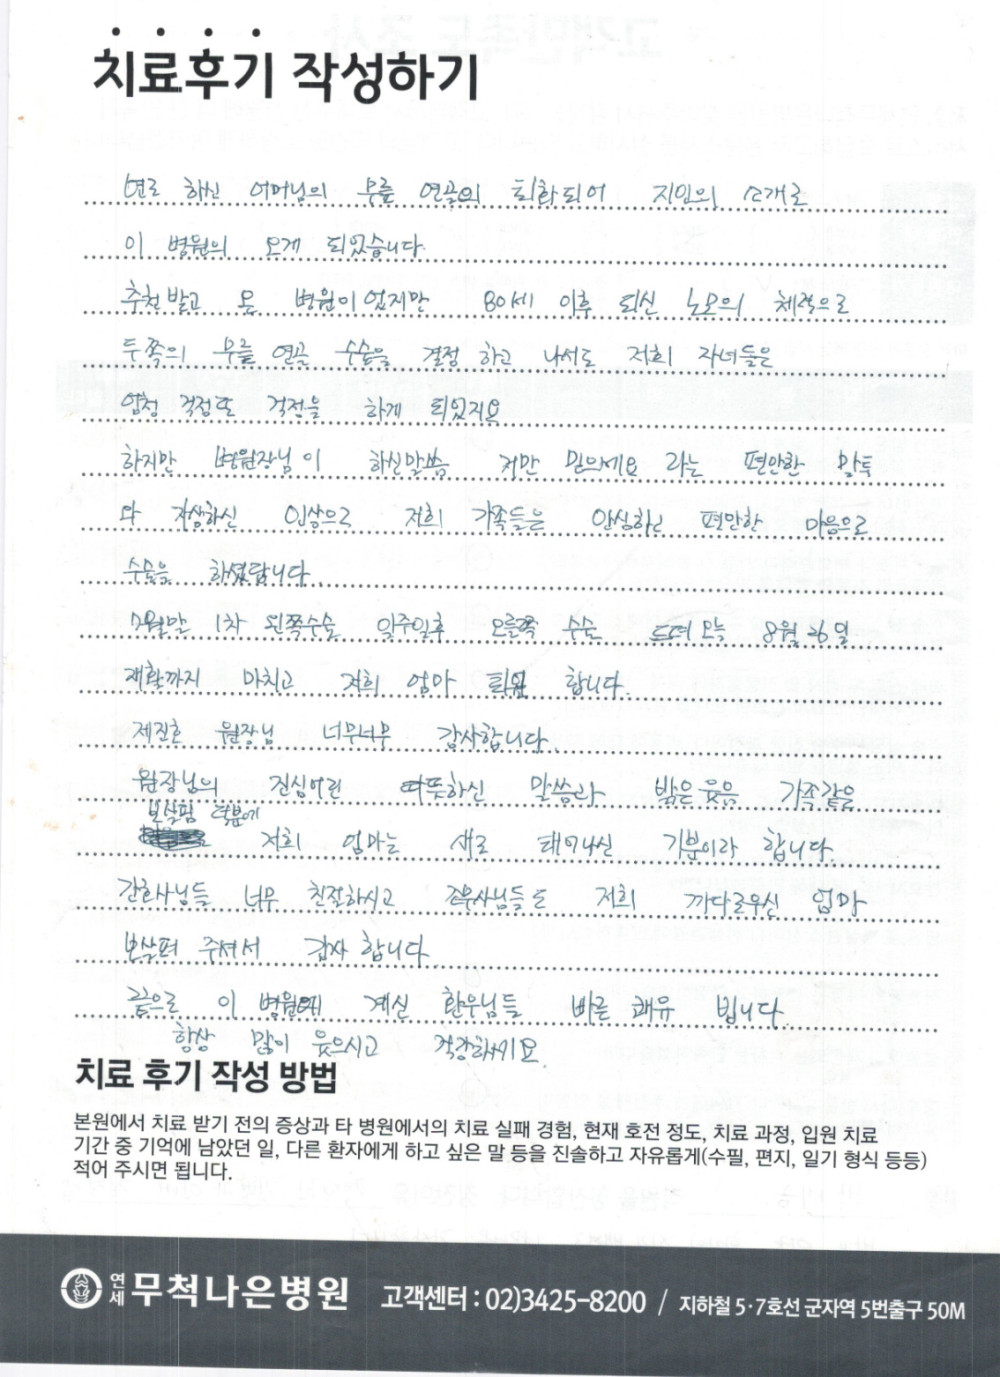 치료후기 작성하기
연로 하신 어머님의 무릎 연골의 퇴화되어 지인의 소개로
이 병원의 오게 되었습니다.
추천받고 온 병원이었지만 80세 이후 되신 노모의 체력으로
두쪽의 무릎 연골 수술을 결정 하고 나서도 저희 자녀들은
엄청 걱정도 걱정을 하게 되었지요
하지만 병원장님이 하신말씀 저만 믿으세요 라는 편안한 말투
와 자상하신 인상으로 저희 가족들은 안심하고 편안한 마음으로
수술을 하셨답니다.
7월말 1차 왼쪽수술 일주일후 오른쪽 수술 드뎌 오늘 8월 26일
재활까지 마치고 저희 엄마 퇴원 합니다.
제진호 원장님 너무너무 감사합니다
원장님의 진심어린 따뜻하신 말씀과 밝은 웃음 가족같은
보살핌 덕분에
저희 엄마는 새로 태어나신 기분이라 합니다.
간호사님들 너무 친절하시고 조무사님들도 저희 까다로우신 엄마
보살펴 주셔서 감사 합니다.
끝으로 이 병원에 계신 환우님들 빠른 쾌유 빕니다.
항상 많이 웃으시고 건강하시기요.
치료 후기 작성 방법
본원에서 치료 받기 전의 증상과 타 병원에서의 치료 실패 경험, 현재 호전 정도, 치료 과정, 입원 치료
기간 중 기억에 남았던 일, 다른 환자에게 하고 싶은 말 등을 진솔하고 자유롭게(수필, 편지, 일기 형식 등등)
적어 주시면 됩니다.
연세 무척나은병원 고객센터 : 02)3425-8200 / 지하철 5·7호선 군자역 5번출구 50M